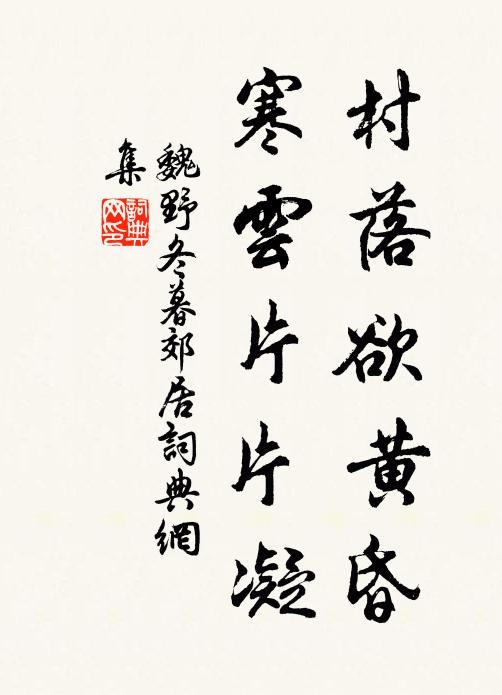 村落欲黄昏
寒雲片片凝
魏野冬暮郊居詞典網
集
詞典
网印